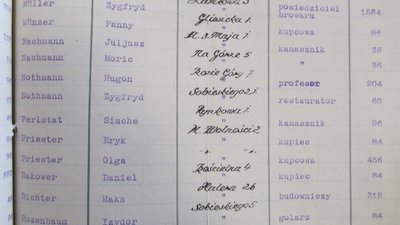 Müller Zygfryd posiedziciel
browaru 1584
Münzer Fanny Gliwicka 1 kupcowa 96
Nachmann Juljusz 3. Maja 1 kamasznik 36
Nachmann Moric Na Górze 5 " 36
Nothmann Hugon Kozie Góry 7 profesor 204
Nothmann Zygfryd Sobieskiego 21 restaurator 60
Perlstat Simche Rynkowa 1 kamasznik 96
Priester Eryk Pl. Wolności 2 kupiec 84
Priester Olga -"- kupcowa
Rakower Daniel Kościelna 4 kupiec 84
Richter Maks Halera 26 budowniczy 312
Rozenbaum Izydor Sobieskiego 5 golarz 84